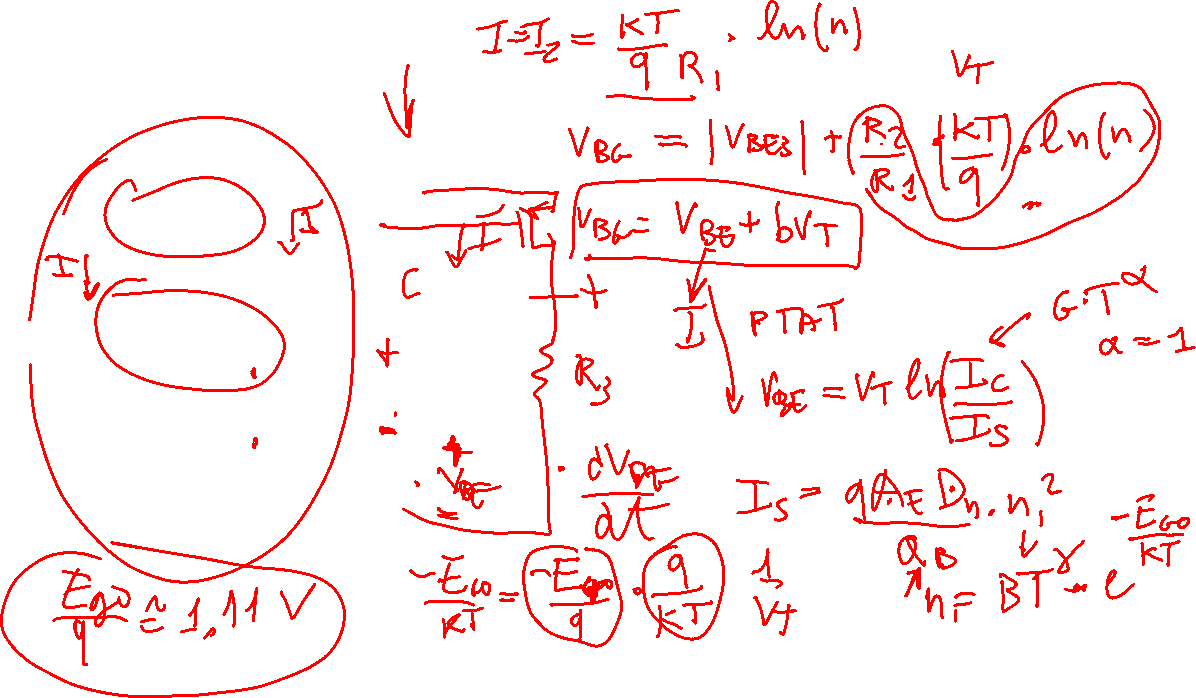 I = I₂ = KT / q R₁ · ln(n)
V_T
V_BG = |V_BE3| + (R2 / R1) · (KT / q) · ln(n)
I
I
I
V_BG = V_BE + bV_T
C
+
I
PTAT
G·T^α
α = 1
+
R₃
V_BE = V_T ln(I_C / I_S)
-
+
V_BE
-
dV_BE / dt
I_S = qA_E D_n · n_i² / Q_B
n_i = BT^γ · e^(-E_G0 / KT)
-E_G0 / KT = -E_g0 / q · q / KT
1 / V_T
E_g0 / q ≅ 1,11 V